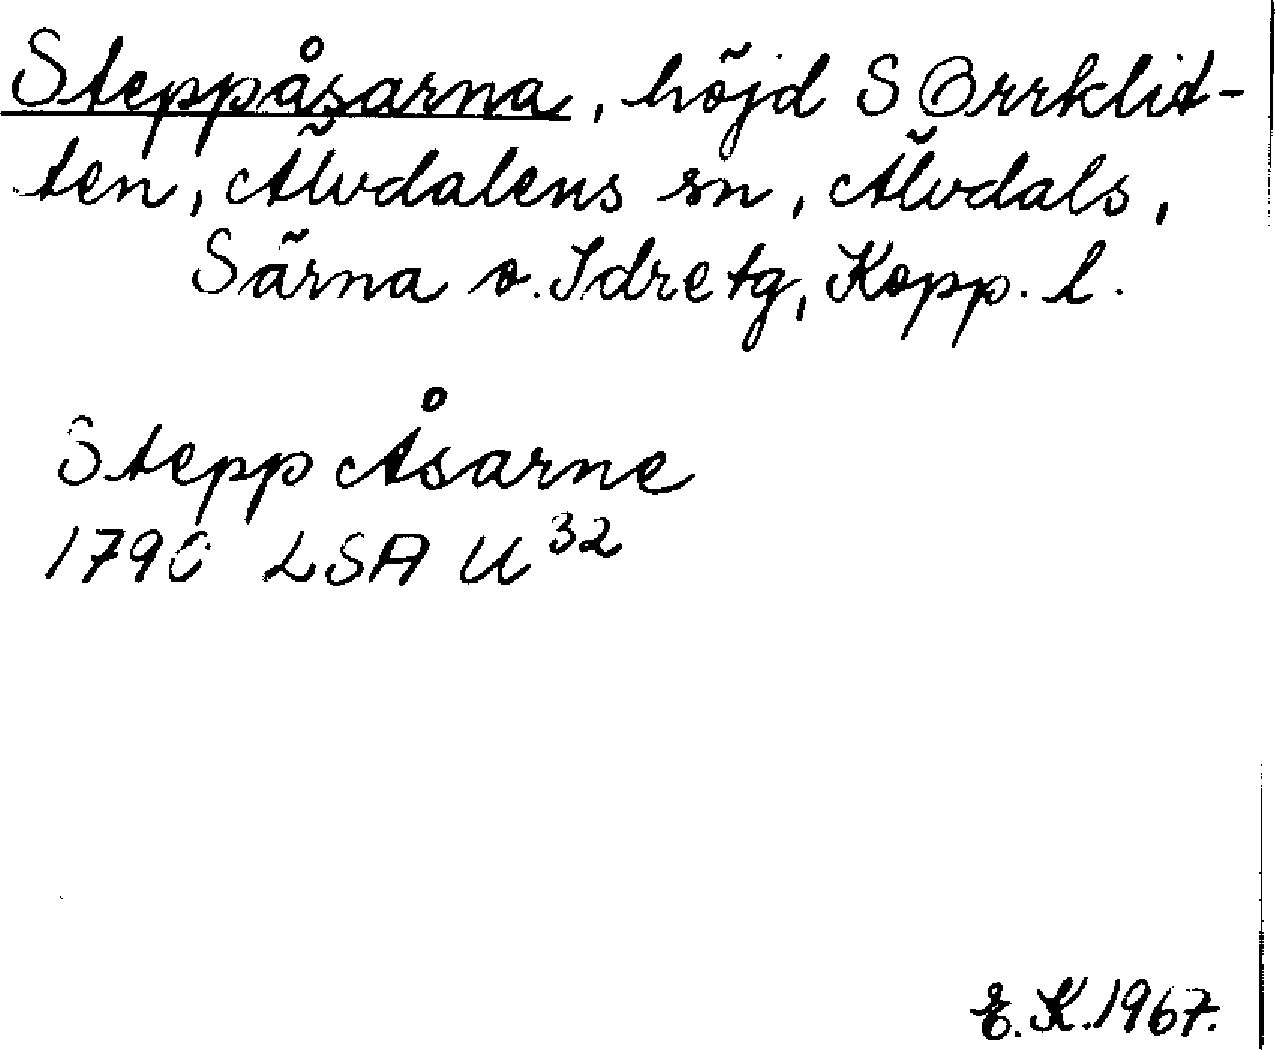 Steppåsarna, höjd S Orrklit-
ten, Älvdalens sn, Älvdals,
Särna o. Idre tg, Kopp. l.
Stepp Åsarne
1790 LSA U 32
E. K. 1967.